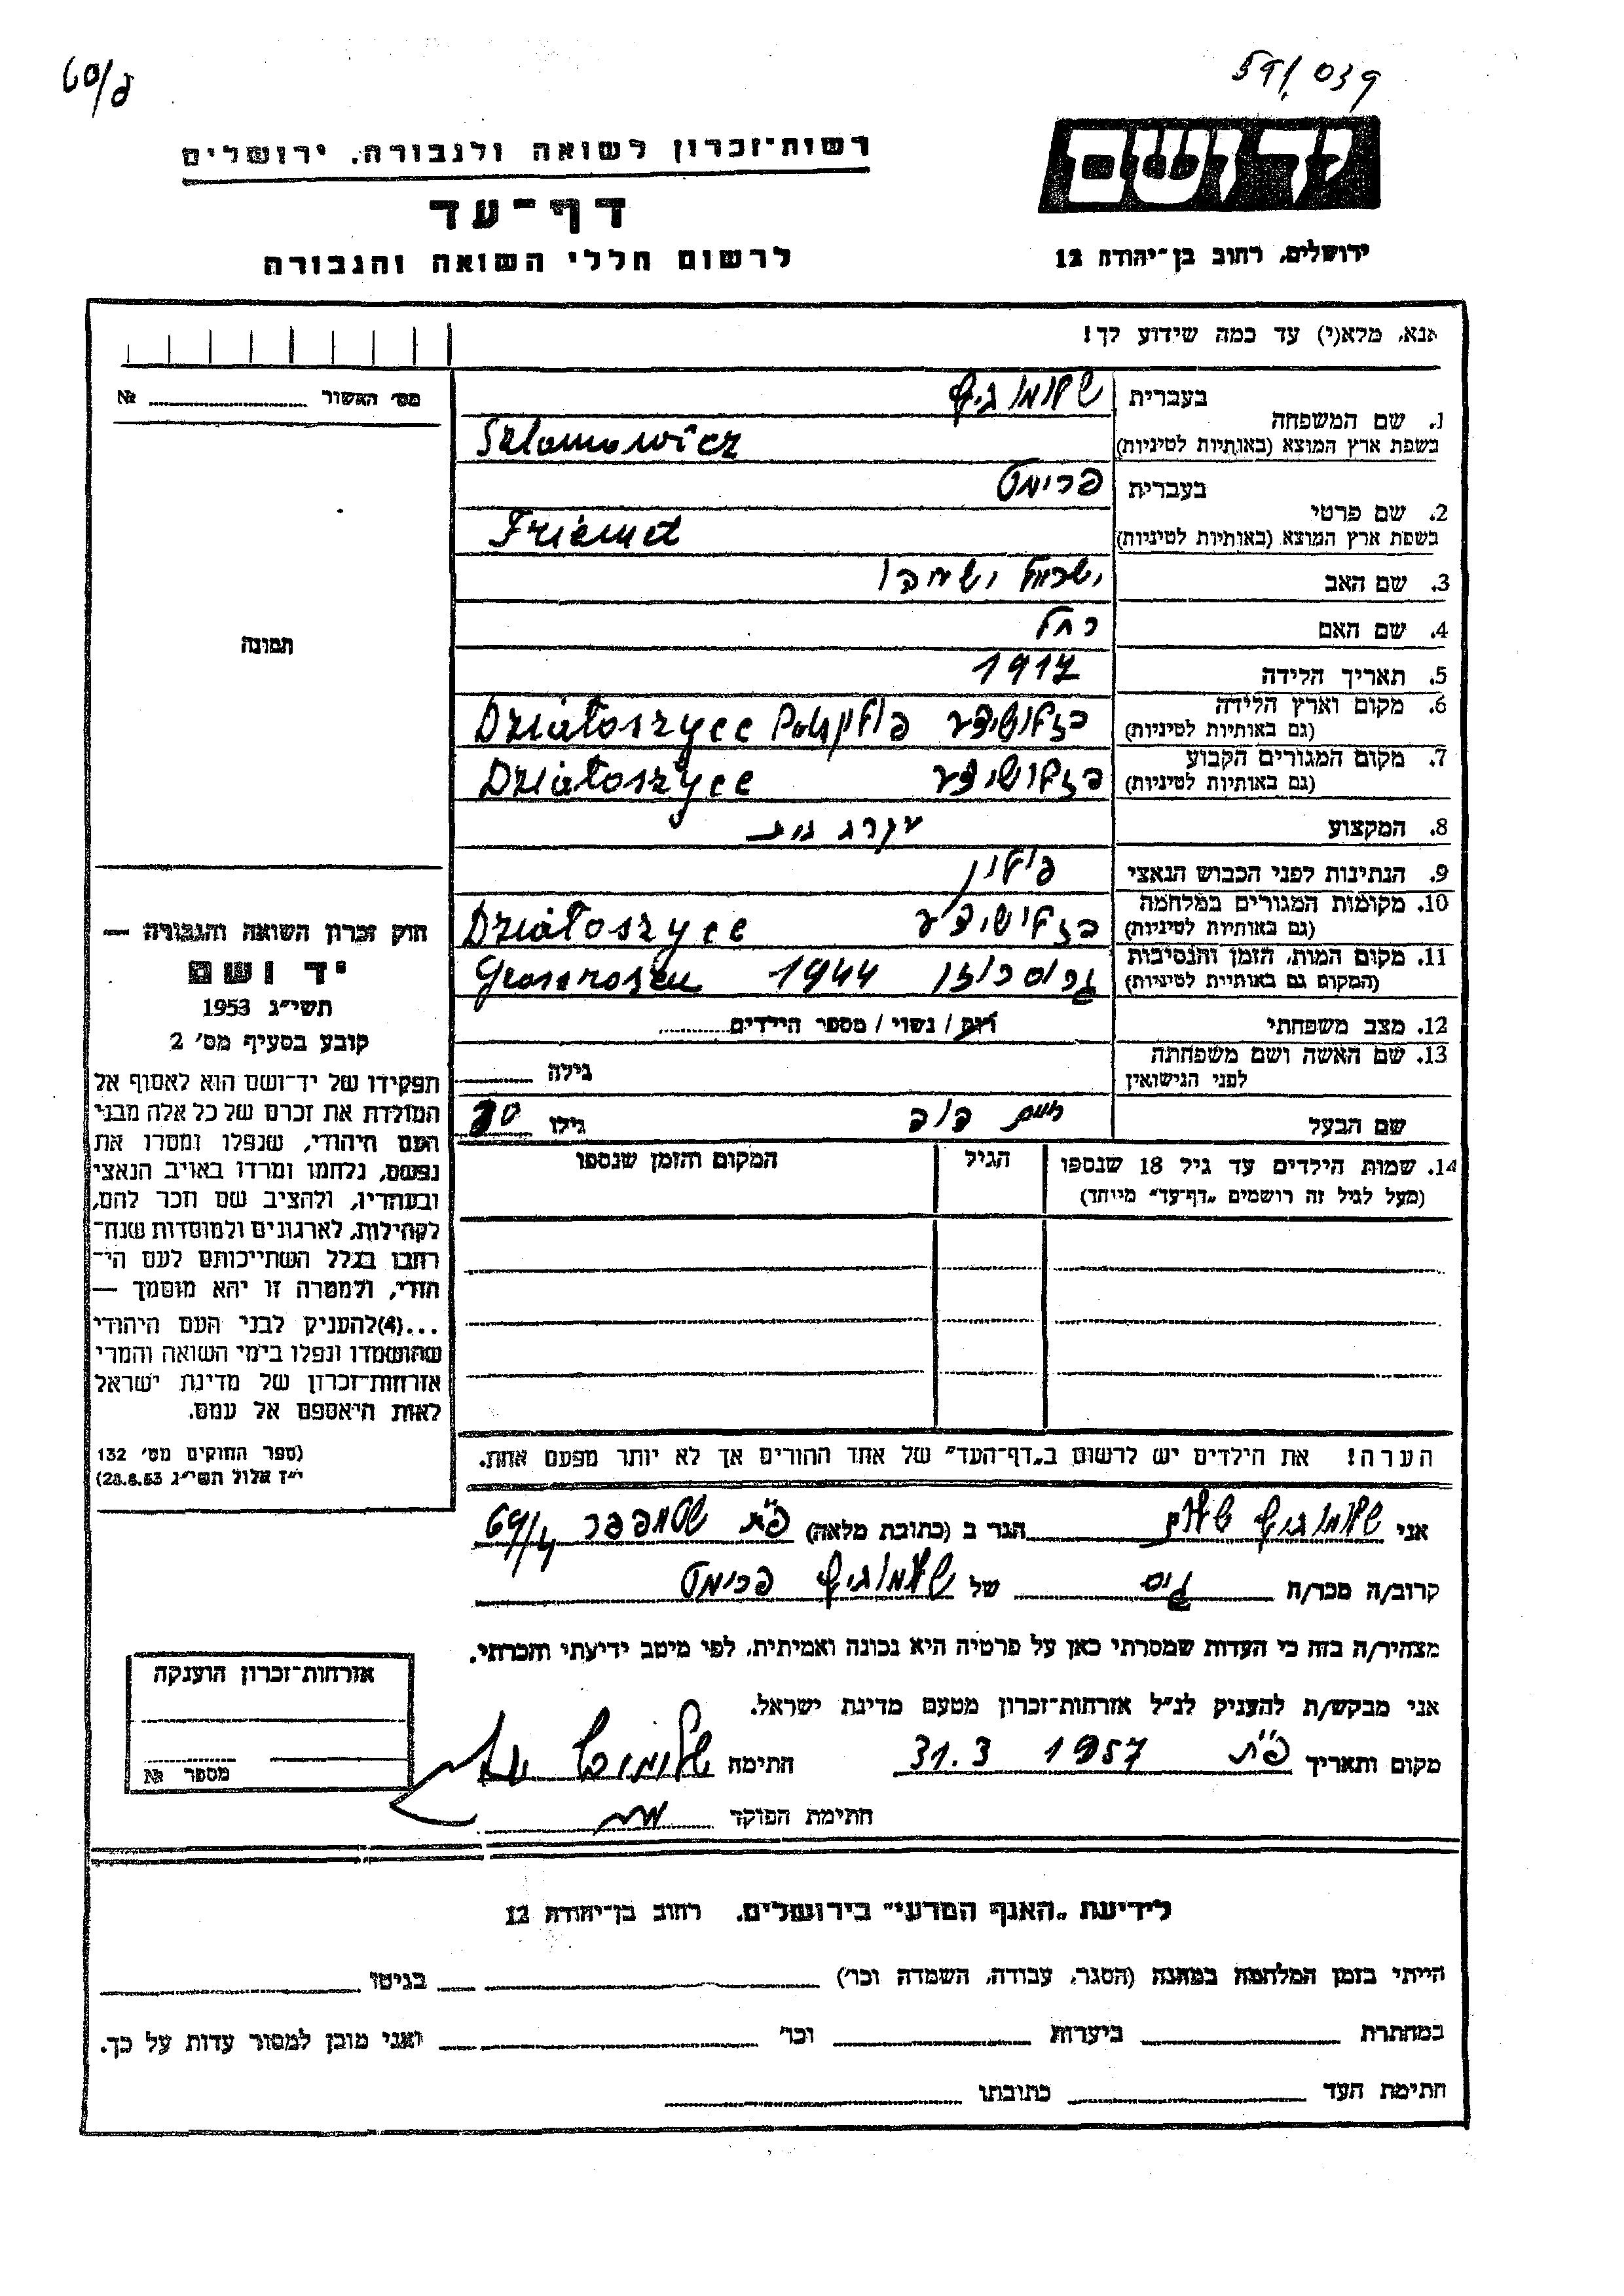 59/039
60/ב
יד ושם
רשות־זכרון לשואה ולגבורה, ירושלים
דף־עד
לרשום חללי השואה והגבורה
ירושלים, רחוב בן־יהודה 12
אנא, מלא(י) עד כמה שידוע לך!
מס׳ האשור № ........
1. שם המשפחה
בעברית שלומוביץ
בשפת ארץ המוצא (באותיות לטיניות) Szlomowicz
2. שם פרטי
בעברית פרימט
בשפת ארץ המוצא (באותיות לטיניות) Friemet
3. שם האב ישראל
4. שם האם רחל
5. תאריך הלידה 1917
6. מקום וארץ הלידה (גם באותיות לטיניות) פולין Działoszyce
7. מקום המגורים הקבוע (גם באותיות לטיניות) Działoszyce
8. המקצוע
9. הנתינות לפני הכבוש הנאצי פולין
10. מקומות המגורים במלחמה (גם באותיות לטיניות) Działoszyce
11. מקום המות, הזמן והנסיבות (המקום גם באותיות לטיניות) גרוסרוזן 1944 Grossrosen
12. מצב משפחתי רווק / נשוי / מספר הילדים........
13. שם האשה ושם משפחתה לפני הנישואין גילה
שם הבעל גילו 30
14. שמות הילדים עד גיל 18 שנספו
(מעל לגיל זה רושמים „דף־עד״ מיוחד)
הגיל
המקום והזמן שנספו
תמונה
חוק זכרון השואה והגבורה —
יד ושם
תשי״ג 1953
קובע בסעיף מס׳ 2
תפקידו של יד־ושם הוא לאסוף אל
המולדת את זכרם של כל אלה מבני
העם היהודי, שנפלו ומסרו את
נפשם, נלחמו ומרדו באויב הנאצי
ובעוזריו, ולהציב שם וזכר להם,
לקהילות, לארגונים ולמוסדות שנח־
רבו בגלל השתייכותם לעם הי־
הודי, ולמטרה זו יהא מוסמך —
...(4) להעניק לבני העם היהודי
שהושמדו ונפלו בימי השואה והמרי
אזרחות־זכרון של מדינת ישראל
לאות היאספם אל עמם.
(ספר החוקים מס׳ 132
י״ז אלול תשי״ג 28.8.53)
הערה! את הילדים יש לרשום ב„דף־העד״ של אחד ההורים אך לא יותר מפעם אחת.
אני שלומוביץ הגר ב (כתובת מלאה) פ״ת שטמפפר 69/4
קרוב/ה מכר/ה גיס של שלומוביץ פרימט
מצהיר/ה בזה כי העדות שמסרתי כאן על פרטיה היא נכונה ואמיתית, לפי מיטב ידיעתי והכרתי.
אני מבקש/ת להעניק לנ״ל אזרחות־זכרון מטעם מדינת ישראל.
מקום ותאריך פ״ת 31.3 1957 חתימה
חתימת הפוקד
אזרחות־זכרון הוענקה
מספר №
לידיעת „האגף המדעי״ בירושלים, רחוב בן־יהודה 12
הייתי בזמן המלחמה במחנה (הסגר, עבודה, השמדה וכו׳) בגיטו
במחתרת ביערות וכו׳ ואני מוכן למסור עדות על כך.
חתימת העד כתובתו